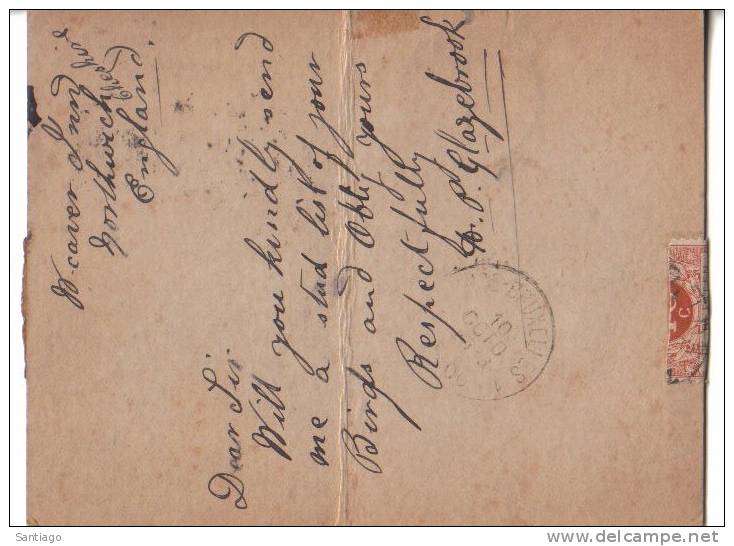 Weaver Inn
Northwich
Cheshire
England.
Dear Sir
Will you kindly send
me a stud list of your
Birds and Oblig yours
Respectfully
P. Glazebrook
BRUXELLES
10
OCTO
C
Santiago
delcampe.net